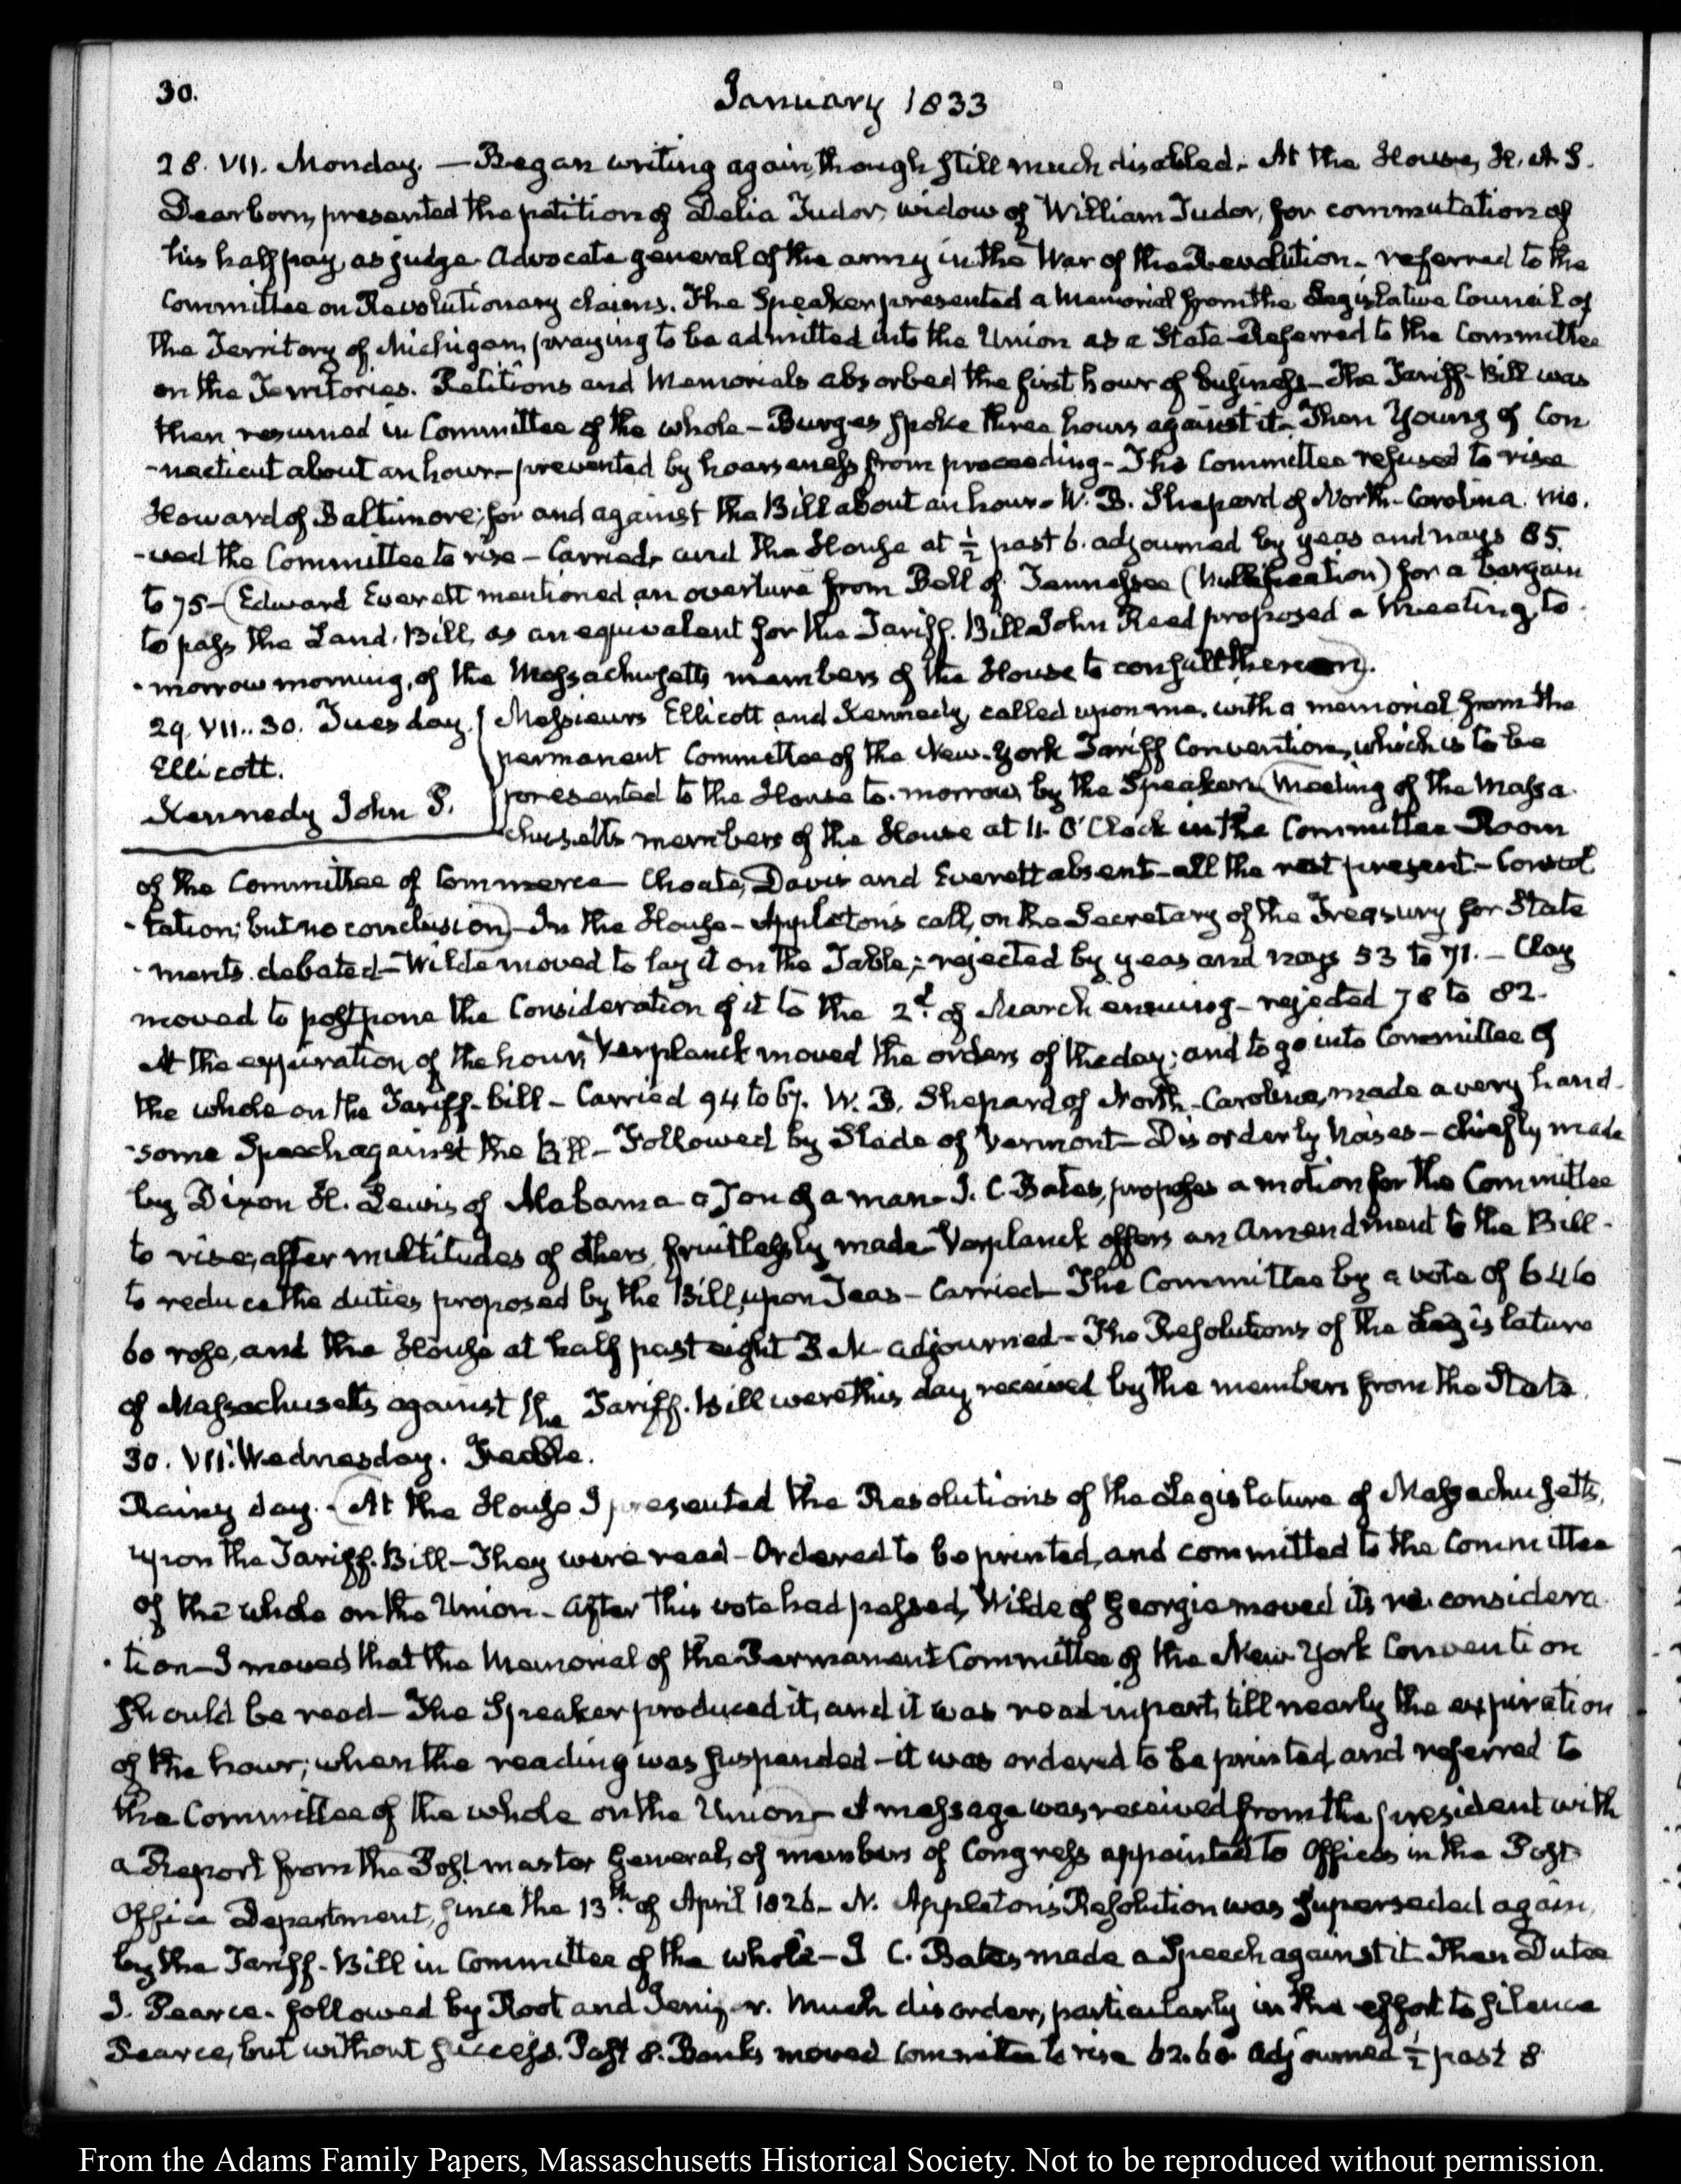 30.
January 1833
28. VII. Monday. — Began writing again, though still much disabled. At the House, H. A. S.
Dearborn, presented the petition of Delia Tudor, widow of William Tudor, for commutation of
his half pay, as judge Advocate general of the army in the War of the Revolution — referred to the
Committee on Revolutionary claims. The Speaker presented a Memorial from the Legislative Council of
the Territory of Michigan, praying to be admitted into the Union as a State — Referred to the Committee
on the Territories. Petitions and Memorials absorbed the first hour of business — The Tariff-Bill was
then resumed in Committee of the whole — Burges spoke three hours against it — Then Young of Con
-necticut about an hour — prevented by hoarseness from proceeding — The Committee refused to rise
Howard of Baltimore; for and against the Bill about an hour — W. B. Shepard of North-Carolina mo.
-ved the Committee to rise — Carried, and the House at ½ past 6. adjourned by yeas and nays 85.
to 75 — (Edward Everett mentioned an overture from Bell of Tennessee (Nullification) for a bargain
to pass the Land. Bill, as an equivalent for the Tariff. Bill John Reed proposed a Meeting, to.
-morrow morning, of the Massachusetts members of the House to consult thereon).
29. VII..30. Tuesday. { Messieurs Ellicott and Kennedy, called upon me. with a memorial from the
Ellicott. permanent Committee of the New-York Tariff Convention, which is to be
Kennedy John P. presented to the House to-morrow by the Speaker (Meeting of the Massa
chusetts members of the House at 11. O'Clock in the Committee Room
of the Committee of Commerce — Choate, Davis and Everett absent — all the rest present — Consul
-tation; but no conclusion) — In the House — Appleton's call, on the Secretary of the Treasury for State
-ments. debated — Wilde moved to lay it on the Table; — rejected by yeas and nays 53 to 71. — Clay
moved to postpone the Consideration of it to the 2d. of March ensuing — rejected 78 to 82.
At the expiration of the hour, Verplanck moved the orders of the day; and to go into Committee of
the whole on the Tariff-bill — Carried 94 to 67. W. B. Shepard of North-Carolina, made a very hand-
-some Speech against the Bill — Followed by Slade of Vermont — Disorderly Noises — chiefly made
by Dixon H. Lewis, of Alabama a Ton of a man — I. C. Bates, proposes a motion for the Committee
to rise, after multitudes of others, fruitlessly made — Verplanck offers an Amendment to the Bill —
to reduce the duties proposed by the Bill, upon Teas — Carried — The Committee by a vote of 64 to
60 rose, and the House at half past eight P.M. adjourned — The Resolutions of the Legislature
of Massachusetts against the Tariff. Bill were this day received by the members from the State.
30. VII. Wednesday. Treadle.
Rainy day. — (At the House I presented the Resolutions of the Legislature of Massachusetts,
upon the Tariff. Bill — They were read — Ordered to be printed, and committed to the Committee
of the whole on the Union — After this vote had passed, Wilde of Georgia moved its re.considera
-tion — I moved that the Memorial of the Permanent Committee of the New-York Convention
should be read — The Speaker produced it, and it was read in part, till nearly the expiration
of the hour; when the reading was suspended — it was ordered to be printed and referred to
the Committee of the whole on the Union) — A message was received from the President with
a Report from the Postmaster General, of members of Congress appointed to Offices in the Post
Office Department, since the 13th. of April 1826 — N. Appleton's Resolution was superseded again,
by the Tariff-Bill in Committee of the whole — I C. Bates made a Speech against it Then Dutee
J. Pearce — followed by Root and Jenifer. Much disorder, particularly in the effort to silence
Pearce, but without success. Past 8. Banks moved Committee to rise 62.60. Adjourned ½ past 8
From the Adams Family Papers, Massachusetts Historical Society. Not to be reproduced without permission.